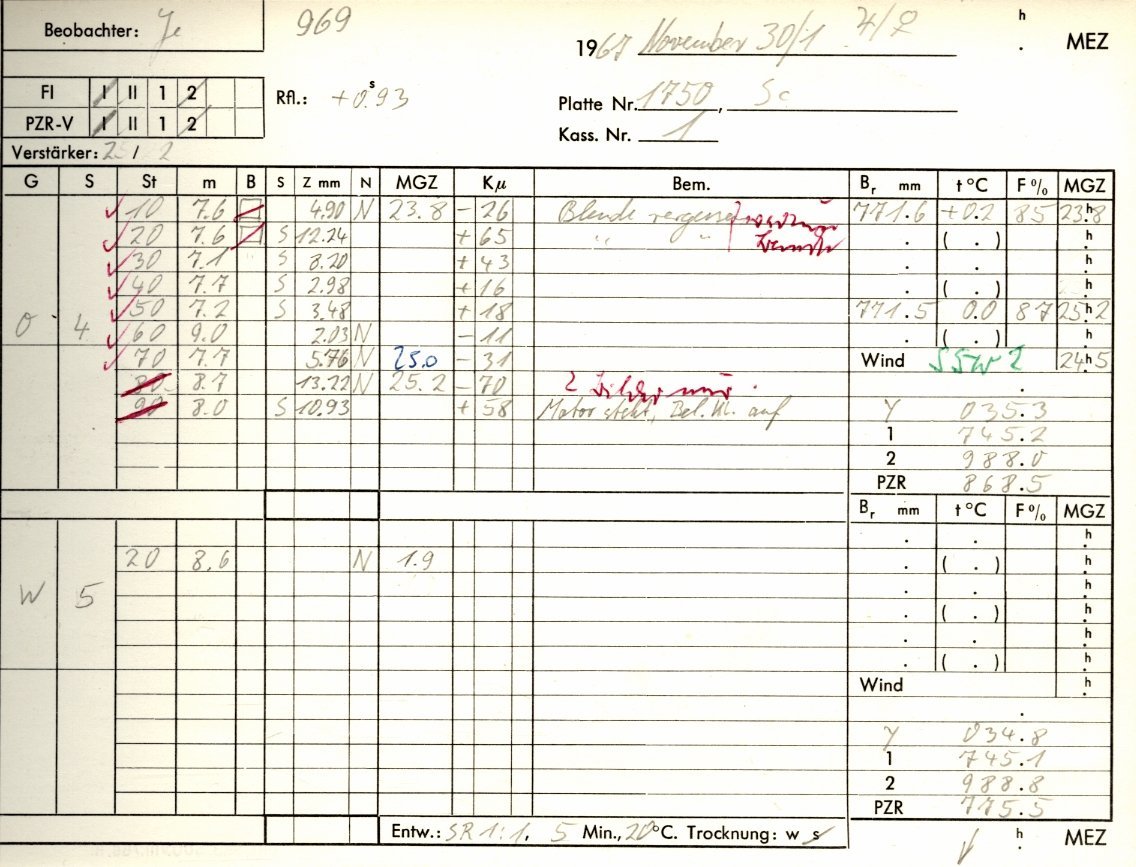 Beobachter: Je 969 1967 November 30/1 4/♀ h . MEZ
FI I II 1 2 Rfl.: +0.s93 Platte Nr. 1750, Sc
PZR-V I II 1 2 Kass. Nr. 1
Verstärker: 2 / 2
G S St m B S Z mm N MGZ Kμ Bem. Br mm t °C F % MGZ
10 7.6 4.90 N 23.8 − 26 Blende vergessen 771.6 +0.2 85 23.h8
20 7.6 S 12.24 + 65 " " . ( . ) h
30 7.1 S 8.20 + 43 . . h
40 7.7 S 2.98 + 16 . ( . ) h
50 7.2 S 3.48 + 18 771.5 0.0 87 25.h2
O 4 60 9.0 2.03 N − 11 . ( . ) h
70 7.7 5.76 N 25.0 − 31 Wind SSW 2 24.h5
80 8.7 13.22 N 25.2 − 70 2 Bilder nur . .
90 8.0 S 10.93 + 58 Motor steht, Bel. Kl. auf γ 035.3
1 745.2
2 988.0
PZR 868.5
Br mm t °C F % MGZ
. . h
20 8.6 N 1.9 . ( . ) h
W 5 . . h
. ( . ) h
. . h
. ( . ) h
Wind h
.
γ 034.8
1 745.1
2 988.8
PZR 775.5
Entw.: SR 1:1, 5 Min., 20 °C. Trocknung: w s h . MEZ